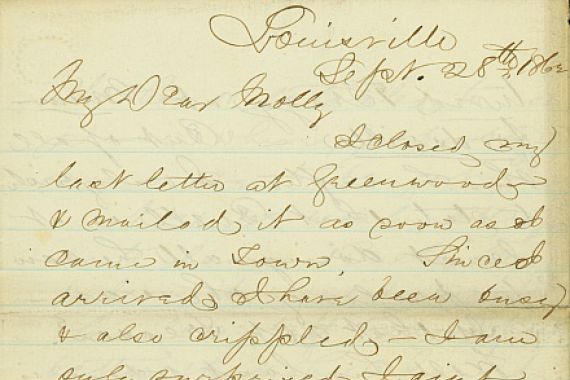 Louisville
Sept. 28th, 1862
My Dear Molly
I closed my
last letter at Greenwood
& mailed it as soon as I
came in Town, Since I
arrived I have been busy
& also crippled – I am
only surprised I ain't